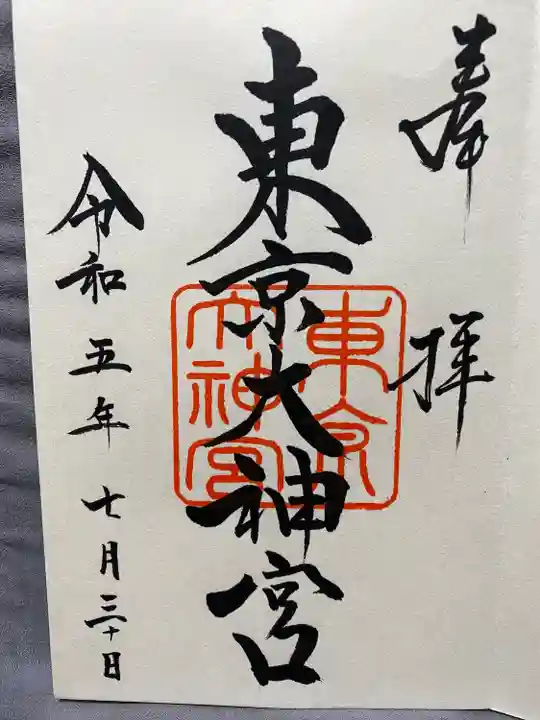 奉拝
東京大神宮
東京大神宮
令和五年七月三十日